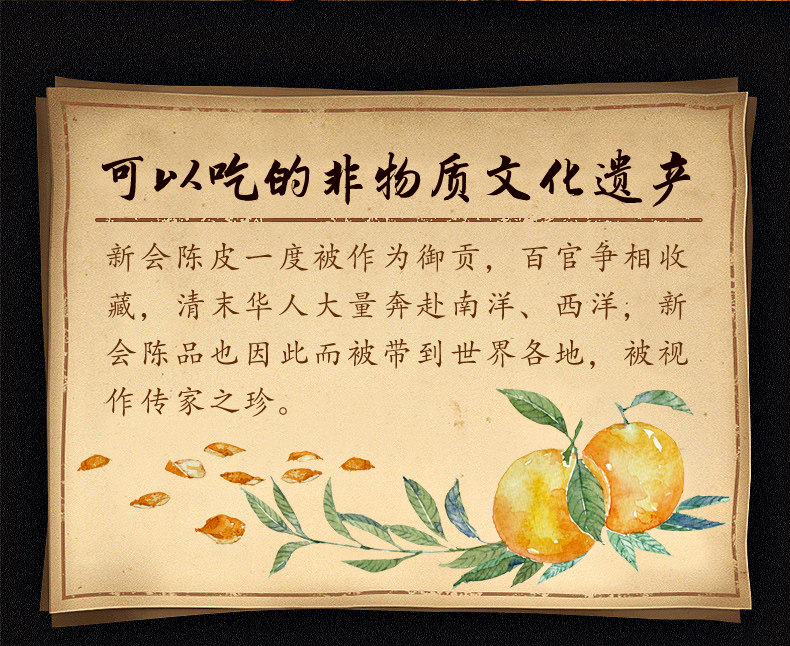 可以吃的非物质文化遗产
新会陈皮一度被作为御贡，百官争相收
藏，清末华人大量奔赴南洋、西洋，新
会陈品也因此而被带到世界各地，被视
作传家之珍。